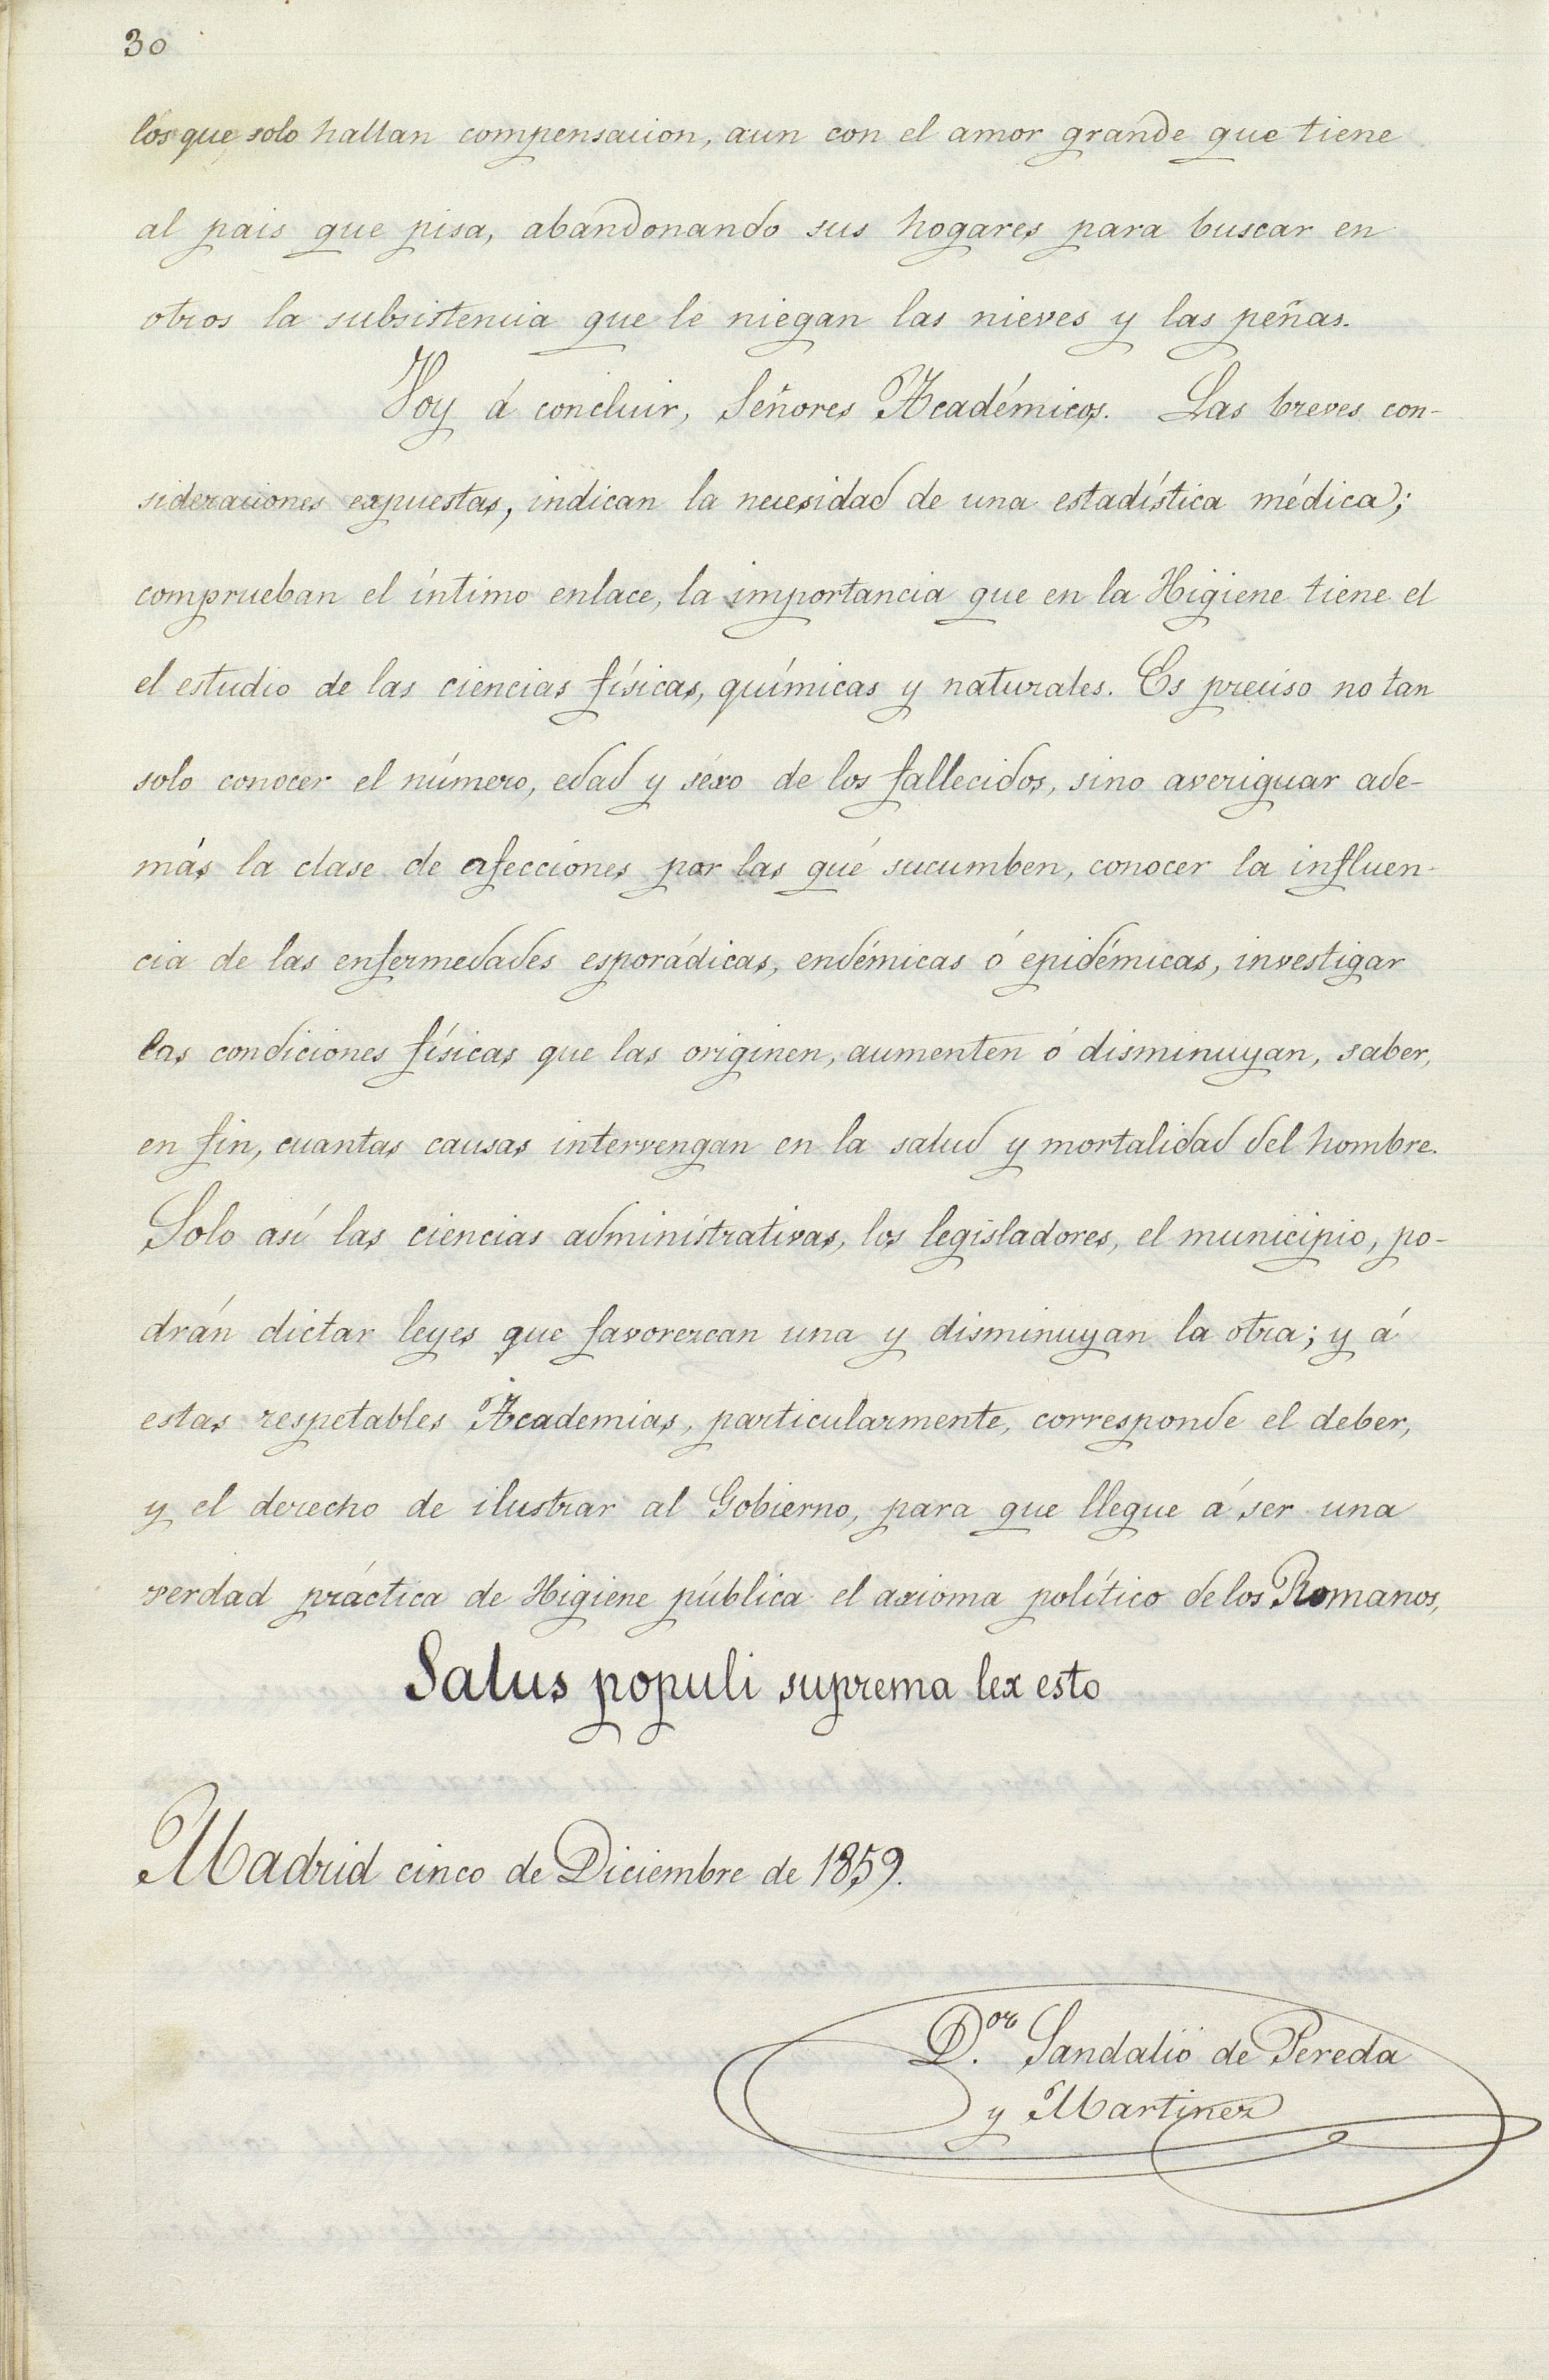 30
los que solo hallan compensacion, aun con el amor grande que tiene
al pais que pisa, abandonando sus hogares para buscar en
otros la subsistencia que le niegan las nieves y las peñas.
Voy á concluir, Señores Académicos. Las breves con-
sideraciones expuestas, indican la necesidad de una estadística médica;
comprueban el íntimo enlace, la importancia que en la Higiene tiene el
el estudio de las ciencias físicas, químicas y naturales. Es preciso no tan
solo conocer el número, edad y séxo de los fallecidos, sino averiguar ade-
más la clase de afecciones por las qué sucumben, conocer la influen-
cia de las enfermedades esporádicas, endémicas ó epidémicas, investigar
las condiciones físicas que las originen, aumenten ó disminuyan, saber,
en fin, cuantas causas intervengan en la salud y mortalidad del hombre.
Solo así las ciencias administrativas, los legisladores, el municipio, po-
drán dictar leyes que favorezcan una y disminuyan la otra; y á
estas respetables Academias, particularmente, corresponde el deber,
y el derecho de ilustrar al Gobierno, para que llegue á ser una
verdad práctica de Higiene pública el axioma político de los Romanos,
Salus populi suprema lex esto
Madrid cinco de Diciembre de 1859.
D.or Sandalio de Pereda
y Martinez